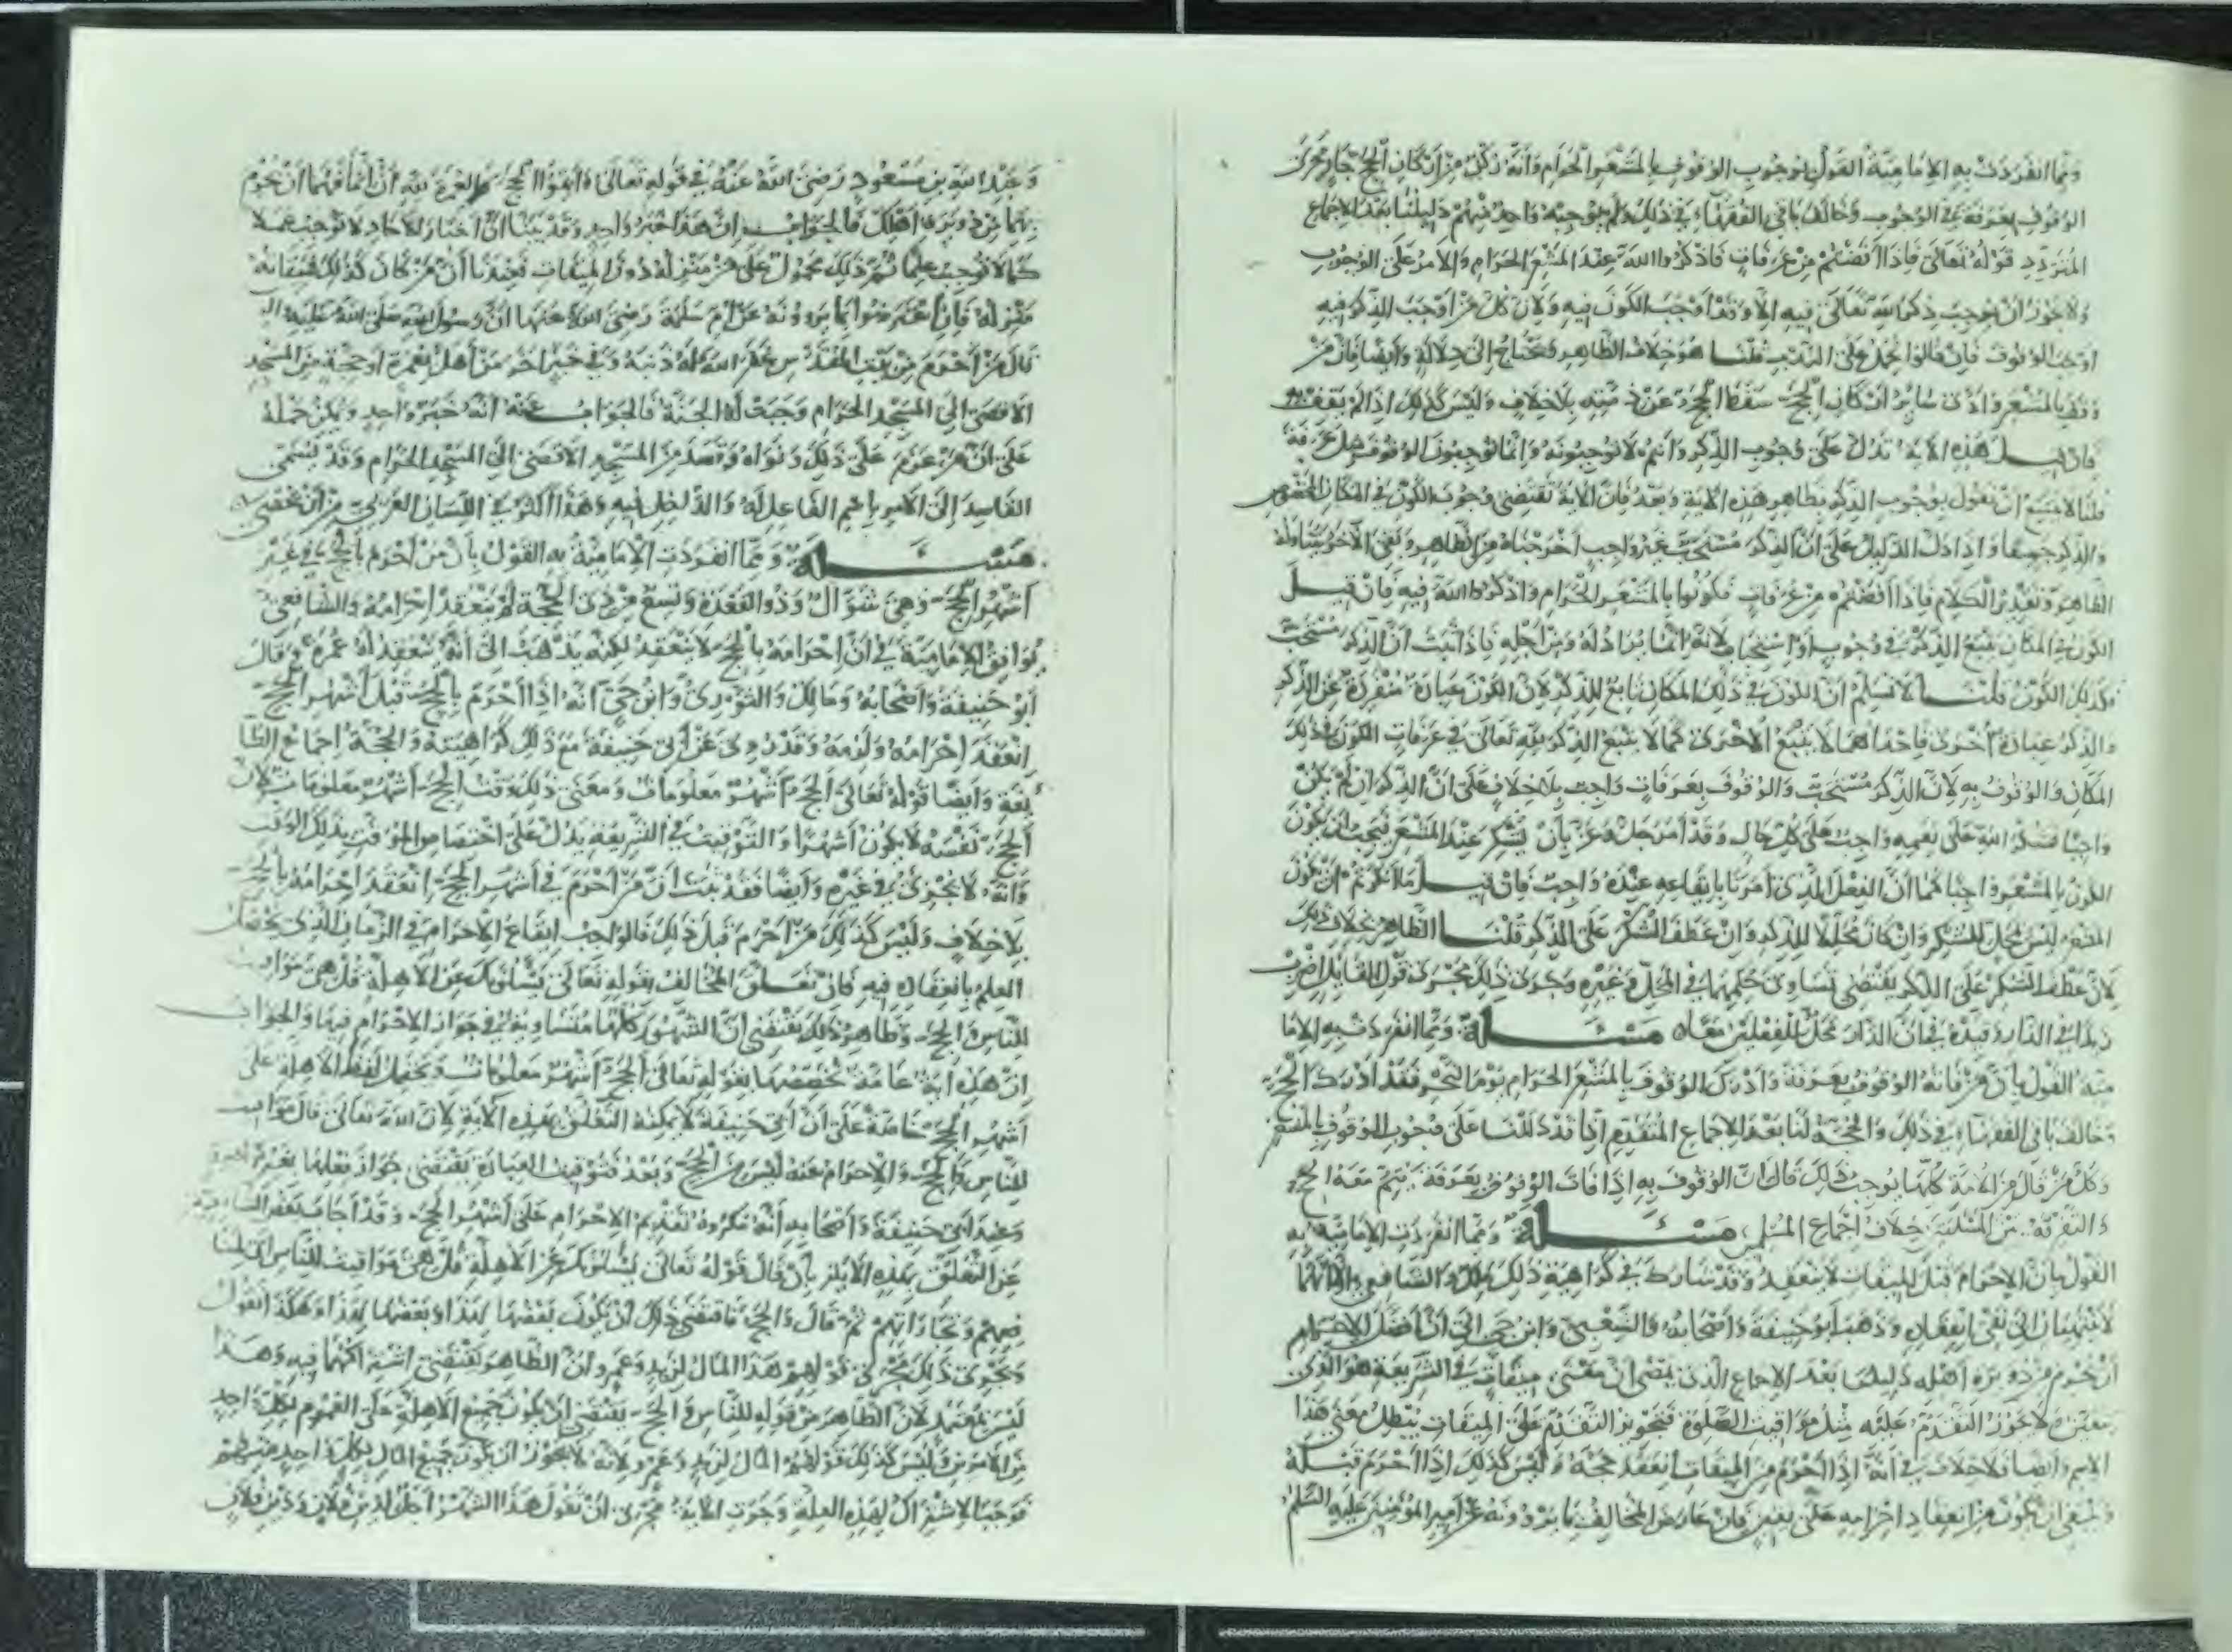 ومما انفردت به الامامية القول بوجوب الوقوف بالمشعر الحرام وانه ركن من اركان الحج جار مجرى
الوقوف بعرفة في الوجوب وخالف باقي الفقهاء في ذلك ولم يوجبه واحد منهم دليلنا بعد الاجماع
المتردد قوله تعالى فاذا افضتم من عرفات فاذكروا الله عند المشعر الحرام والامر على الوجوب
ولا يجوز ان يوجب ذكر الله تعالى فيه الا وقد اوجب الكون فيه ولان كل من اوجب الذكر فيه
اوجب الوقوف فان قالوا نحمل على الندب قلنا هو خلاف الظاهر ويحتاج الى دلالة وايضا فان من
وقف بالمشعر وادى سائر اركان الحج سقط الحج عن ذمته بلا خلاف وليس كذلك اذا لم يقف به
فان قيل هذه الاية تدل على وجوب الذكر وانتم لا توجبونه وانما توجبون الوقوف مثل عرفة
قلنا لا يمتنع ان نقول بوجوب الذكر بظاهر هذه الاية وبعد فان الاية تقتضي وجوب الكون في المكان المخصوص
والذكر جميعا واذا دل الدليل على ان الذكر مستحب غير واجب اخرجناه من الظاهر وبقي الاخر يتناوله
الظاهر وتقدير الكلام فاذا افضتم من عرفات فكونوا بالمشعر الحرام واذكروا الله فيه فان قيل
الكون في المكان يتبع الذكر في وجوب او استحباب لانه انما يراد له ومن اجله فاذا ثبت ان الذكر مستحب
فكذلك الكون قلنا لا نسلم ان الكون في ذلك المكان تابع للذكر لان الكون عبادة منفردة عن الذكر
والذكر عبادة اخرى فاحداهما لا يتبع الاخرى كما لا يتبع الذكر لله تعالى في عرفات الكون في ذلك
المكان والوقوف به لان الذكر مستحب والوقوف بعرفات واجب بلا خلاف على ان الذكر ان لم يكن
واجبا فشكر الله على نعمه واجب على كل حال وقد امر جل وعز بان يشكر عند المشعر فيجب ان يكون
الكون بالمشعر واجبا كما ان الفعل الذي امرنا بايقاعه عنده واجب فان قيل ما انكرتم ان يكون
المشعر ليس بمحل للشكر وان كان محلا للذكر وان عطف الشكر على الذكر قلنا الظاهر بخلاف ذلك
لان عطف الشكر على الذكر يقتضي تساوي حكمهما في المحل وغيره ويجري ذلك مجرى قول القائل اضرب
زيدا في الدار وقيده في ان الدار محل للفعلين معا مسئلة ومما انفردت به الاما
مية القول بان من فاته الوقوف بعرفة وادرك الوقوف بالمشعر الحرام يوم النحر فقد ادرك الحج
وخالف باقي الفقهاء في ذلك والحجة لنا بعد الاجماع المتقدم انا قد دللنا على وجوب الوقوف بالمشعر
وكل من قال من الامة كلها بوجوب ذلك قال ان الوقوف به اذا فات الوقوف بعرفة يتم معه الحج
والتفرقة بين المسئلتين خلاف اجماع المسلمين مسئلة ومما انفردت الامامية به
القول بان الاحرام قبل الميقات لا ينعقد وقد شارك في كراهية ذلك مالك والشافعي الا انهما
لا ينتهيان الى نفي انعقاده وذهب ابو حنيفة واصحابه والشعبي وابن حي الى ان افضل الاحرام
ان تحرم من دويرة اهله دليلنا بعد الاجماع الذي يمضي ان معنى ميقات في الشريعة هو الذي
يتعين ولا يجوز التقدم عليه مثل مواقيت الصلوة فتجويز التقدم على الميقات يبطل معنى هذا
الاسم وايضا فلا خلاف في انه اذا احرم من الميقات انعقد حجه وليس كذلك اذا احرم قبله
فينبغي ان يكون من انعقاد احرامه على يقين فان عارض المخالف بما يروونه عن امير المؤمنين عليه السلم
وعبد الله بن مسعود رضي الله عنه في قوله تعالى واتموا الحج والعمرة لله ان اتمامهما ان تحرم
بهما من دويرة اهلك فالجواب ان هذا خبر واحد وقد بينا ان اخبار الاحاد لا توجب عملا
كما لا توجب علما ثم ذلك محمول على من منزله دون الميقات فعندنا ان من كان كذلك فميقاته
منزله فان اعترضوا بما يروونه عن ام سلمة رضي الله عنها ان رسول الله صلى الله عليه واله
قال من احرم من بيت المقدس غفر الله له ذنبه وفي خبر اخر من اهل بعمرة او حجة من المسجد
الاقصى الى المسجد الحرام وجبت له الجنة فالجواب عنه انه خبر واحد ويمكن حمله
على ان من عزم على ذلك ونواه وقصد من المسجد الاقصى الى المسجد الحرام وقد يسمى
القاصد الى الامر باسم الفاعل له والداخل فيه وهذا اكثر في اللسان العربي من ان يحصى
مسئلة ومما انفردت الامامية به القول بان من احرم بالحج في غير
اشهر الحج وهي شوال وذو القعدة وتسع من ذي الحجة لم ينعقد احرامه والشافعي
يوافق الامامية في ان احرامه بالحج لا ينعقد لكنه يذهب الى انه ينعقد له عمرة وقال
ابو حنيفة واصحابه ومالك والثوري وابن حي انه اذا احرم بالحج قبل اشهر الحج
انعقد احرامه ولزمه وقد روي عن ابي حنيفة مع ذلك كراهيته والحجة اجماع الطا
يفة وايضا قوله تعالى الحج اشهر معلومات ومعنى ذلك وقت الحج اشهر معلومات لان
الحج نفسه لا يكون اشهرا والتوقيت في الشريعة يدل على اختصاص الموقت بذلك الوقت
وانه لا يجزئ في غيره وايضا فقد ثبت ان من احرم في اشهر الحج انعقد احرامه بالحج
بلا خلاف وليس كذلك من احرم قبل ذلك فالواجب ايقاع الاحرام في الزمان الذي يحصل
العلم بانعقاده فيه فان تعلق المخالف بقوله تعالى يسئلونك عن الاهلة قل هي مواقيت
للناس والحج وظاهر ذلك يقتضي ان الشهور كلها متساوية في جواز الاحرام فيها والجواب
ان هذه اية عامة نخصصها بقوله تعالى الحج اشهر معلومات ونحمل لفظ الاهلة على
اشهر الحج خاصة على ان ابي حنيفة لا يمكنه التعلق بهذه الاية لان الله تعالى قال مواقيت
للناس والحج والاحرام عنده ليس من الحج وبعد فتوقيت العبادة يقتضي جواز فعلها بغير كراهية
وعند ابي حنيفة واصحابه انه مكروه تقديم الاحرام على اشهر الحج وقد اجاب بعض الشافعية
عن التعلق بهذه الاية بان قال قوله تعالى يسئلونك عن الاهلة قل هي مواقيت للناس اي لمنا
فعهم وتجاراتهم ثم قال والحج فاقتضى ذلك ان يكون بعضها لهذا وبعضها لهذا وهكذا نقول
ويجري ذلك مجرى قولهم هذا المال لزيد وعمرو ان الظاهر يقتضي اشتراكهما فيه وهذا
ليس بمعتمد لان الظاهر من قوله للناس والحج يقتضي ان يكون جميع الاهلة على العموم لكل واحد
من الامرين وليس كذلك قولهم المال لزيد وعمرو لانه لا يجوز ان يكون جميع المال لكل واحد منهما
فوجب الاشتراك لهذه العلة وجرت الاية مجرى ان نقول هذا الشهر اجل لدين فلان ودين فلان